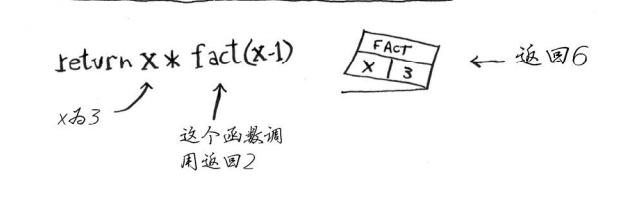 return x * fact(x-1)
FACT
x 3
← 返回6
x为3
这个函数调
用返回2